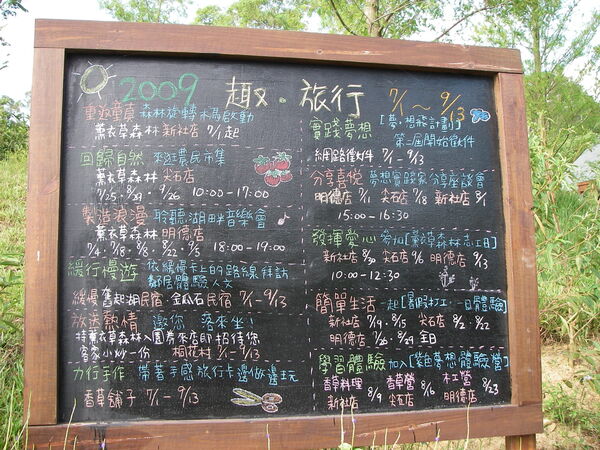 2009 趣．旅行 7/1～9/13
重返童真 森林旋轉木馬啟動
薰衣草森林 新社店 7/1起
回歸自然 來逛農民市集
薰衣草森林 尖石店
7/25．8/29．9/26 10:00-17:00
製造浪漫 聆聽湖畔音樂會
薰衣草森林 明德店
7/4．7/18．8/8．8/22．9/5 18:00-19:00
緩行慢遊 依緩慢卡上的路線拜訪
鄰居體驗人文
緩慢 舊起湖民宿．金瓜石民宿 7/1-9/13
放送熱情 邀您 客來坐
持薰衣草森林入園券來店即招待您
客家小炒一份 桐花村 7/1-9/13
力行手作 帶著手感旅行卡邊做邊玩
香草舖子 7/1-9/13
實踐夢想 [夢想飛計劃]
第二屆開始徵件
網路徵件 7/1-9/13
分享喜悅 夢想實踐家分享座談會
明德店 7/11 尖石店 7/18 新社店 8/1
15:00-16:30
發揮愛心 參加[薰衣草森林志工日]
新社店 8/30 尖石店 9/6 明德店 9/13
10:00-12:30
簡單生活 一起[暑假打工一日體驗]
新社店 7/9．8/15 尖石店 8/2．8/22
明德店 7/26．8/29 全日
學習體驗 加入[紫色夢想體驗營]
香草料理 8/9 香草營 8/16 木工營 8/23
新社店 尖石店 明德店